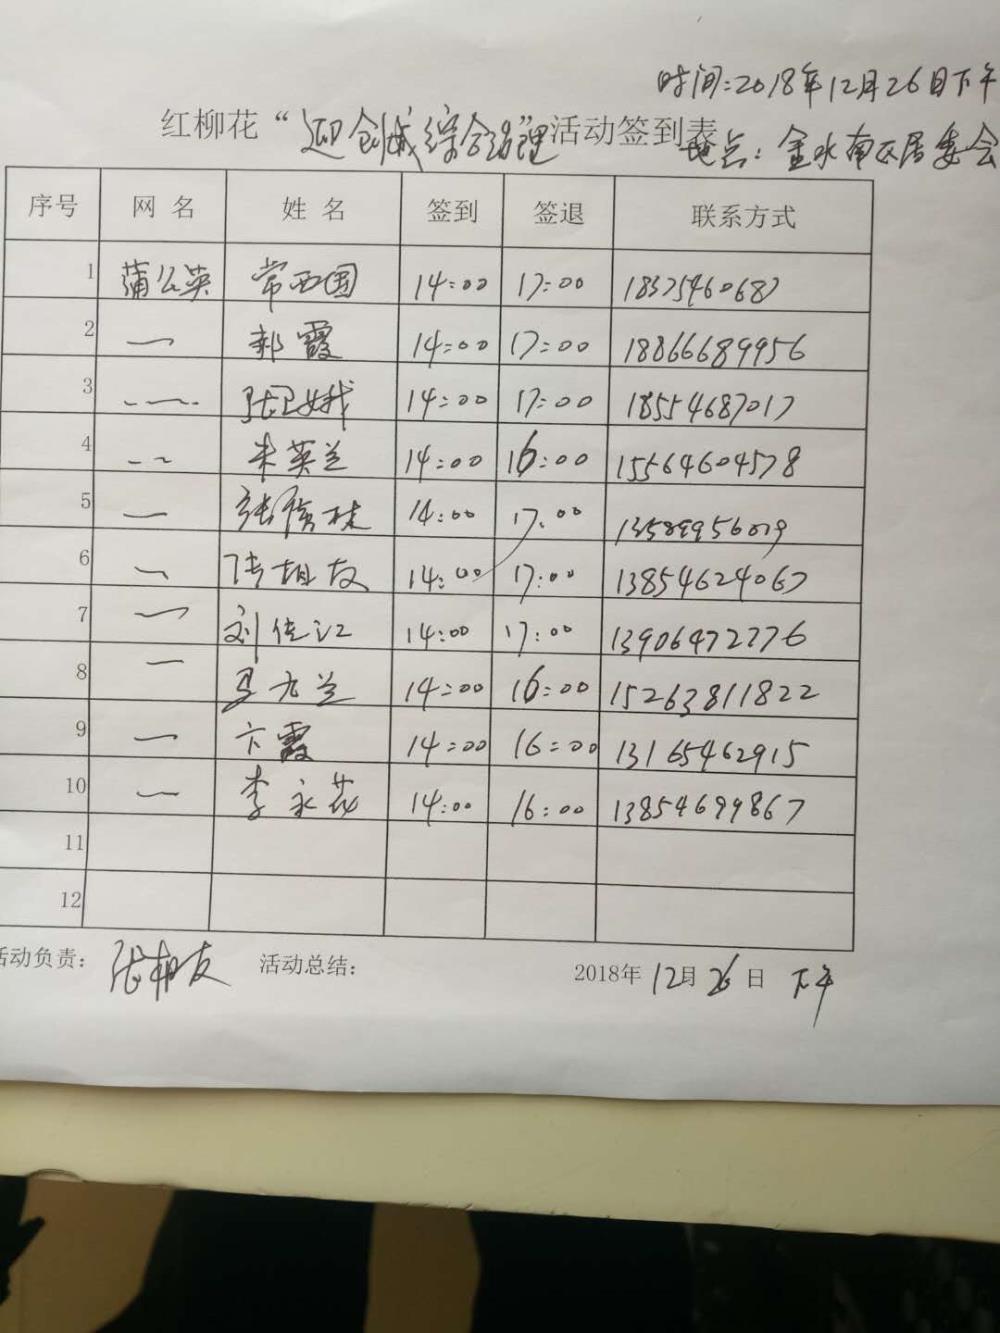 时间:2018年12月26日下午
红柳花“迎创城综合治理”活动签到表
地点:金水南区居委会
序号 网 名 姓 名 签到 签退 联系方式
1 蒲公英 常西国 14:00 17:00 18375460687
2 — 郝霞 14:00 17:00 18866689956
3 — 张卫娥 14:00 17:00 18554687017
4 — 朱英兰 14:00 16:00 15564604578
5 — 14:00 17:00 13589956019
6 — 张相友 14:00 17:00 13854624067
7 — 刘佳江 14:00 17:00 13906472776
8 — 马九兰 14:00 16:00 15263811822
9 — 卞霞 14:00 16:00 13165462915
10 — 李永花 14:00 16:00 13854699867
11
12
活动负责: 张相友 活动总结: 2018年12月26日 下午